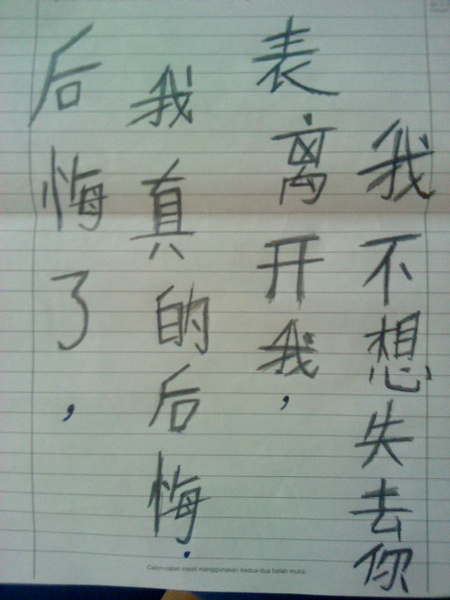 我不想失去你
表离开我,
我真的后悔.
后悔了,
Calon-calon mesti menggunakan kedua-dua belah muka.